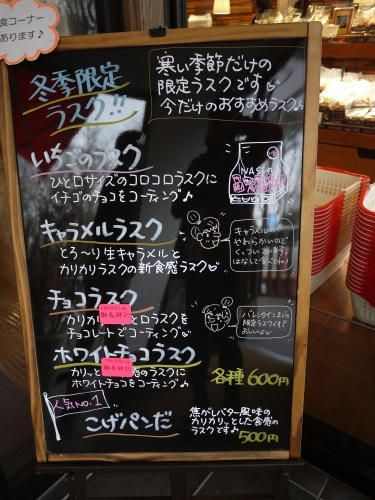 食コーナー
あります♪
冬季限定
ラスク!!
寒い季節だけの
限定ラスクです
今だけのおすすめラスク♪
いちごのラスク
ひと口サイズのコロコロラスクに
イチゴのチョコをコーティング♪
キャラメルラスク
とろ〜り生キャラメルと
カリカリラスクの新食感ラスク
キャラメルが
やわらかいので
くっついています
チョコラスク
カリカリ
とロラスクを
チョコレートでコーティング
バレンタインまでの
限定ラスクです!
ホワイトチョコラスク
カリッと
感のラスクに
ホワイトチョコをコーティング♪
各種600円
人気NO.1
こげパンだ
焦がしバター風味の
カリカリッとした食感の
ラスクです♪
500円